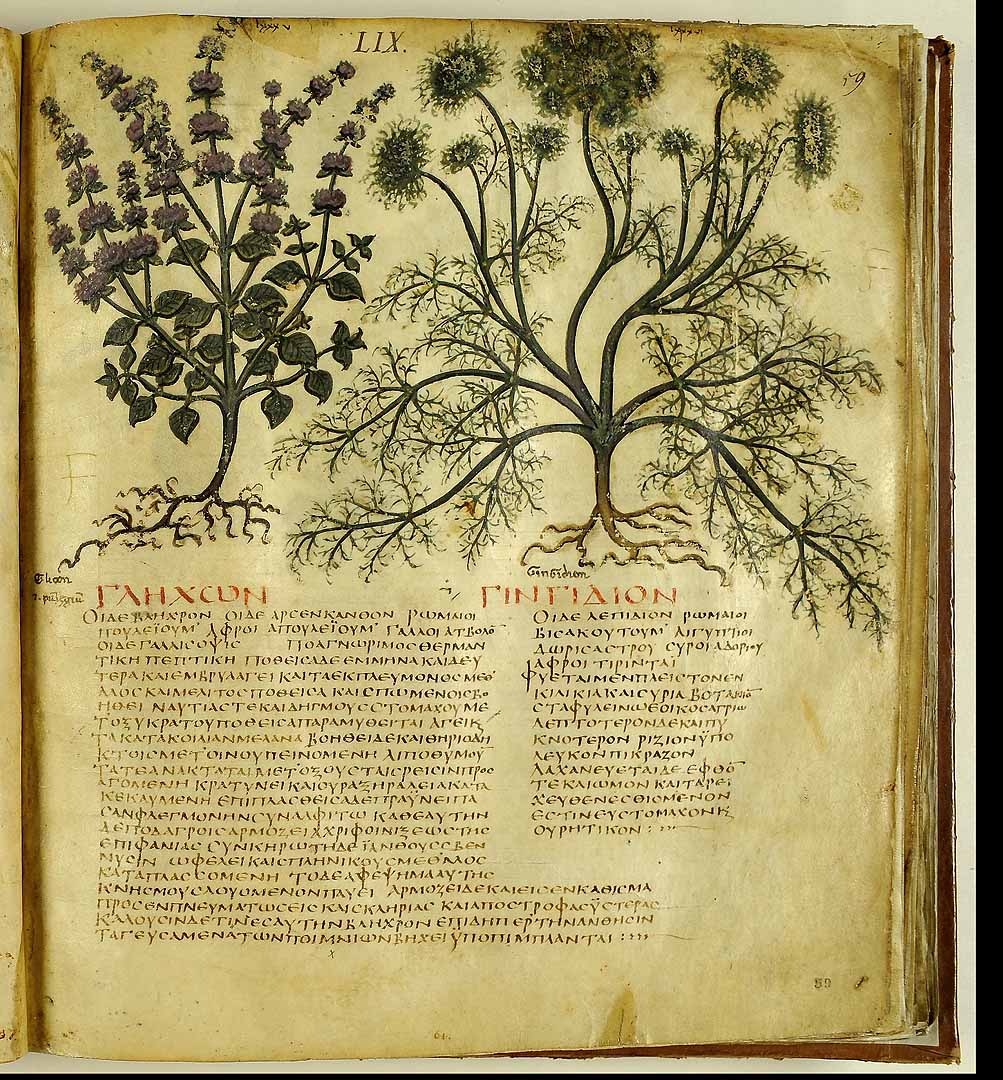 LIX.
59
Glicon
Gingidion
ΓΛΗΧΩΝ
ΟΙΔΕ ΒΛΗΧΡΟΝ ΟΙΔΕ ΑΡΣΕΝΚΑΝΘΟΝ ΡΩΜΑΙΟΙ
ΠΟΥΛΕΪΟΥΜ ΑΦΡΟΙ ΑΠΟΥΛΕΪΟΥΜ ΓΑΛΛΟΙ
ΟΙΔΕ ΓΑΛΛΙΣΟΨΙΣ ΠΟΑ ΓΝΩΡΙΜΟΣ ΘΕΡΜΑΝ
ΤΙΚΗ ΠΕΠΤΙΚΗ ΠΟΘΕΙΣΑ ΔΕ ΕΜΜΗΝΑ ΚΑΙ ΔΕΥ
ΤΕΡΑ ΚΑΙ ΕΜΒΡΥΑ ΑΓΕΙ ΚΑΙ ΤΑ ΕΚ ΠΛΕΥΜΟΝΟΣ ΜΕΘ
ΑΛΟΣ ΚΑΙ ΜΕΛΙΤΟΣ ΠΟΘΕΙΣΑ ΚΑΙ ΣΠΩΜΕΝΟΙΣ ΒΟ
ΗΘΕΙ ΝΑΥΤΙΑΣ ΤΕ ΚΑΙ ΔΗΓΜΟΥΣ ΣΤΟΜΑΧΟΥ ΜΕ
ΤΟΞΥΚΡΑΤΟΥ ΠΟΘΕΙΣΑ ΠΑΡΑΜΥΘΕΙΤΑΙ ΑΓΕΙ Κ
ΤΑ ΚΑΤΑ ΚΟΙΛΙΑΝ ΜΕΛΑΝΑ ΒΟΗΘΕΙ ΔΕ ΚΑΙ ΘΗΡΙΟΔΗ
ΚΤΟΙΣ ΜΕΤ ΟΙΝΟΥ ΠΕΙΝΟΜΕΝΗ ΛΙΠΟΘΥΜΟΥ
ΤΑ ΤΕ ΑΝΑΚΤΑΤΑΙ ΜΕΤ ΟΞΟΥΣ ΤΑΙΣ ΡΕΙΣΙΝ ΠΡΟΣ
ΑΓΟΜΕΝΗ ΚΡΑΤΥΝΕΙ ΚΑΙ ΟΥΛΑ ΞΗΡΑ ΛΕΙΑ ΚΑΤΑ
ΚΕΚΑΥΜΕΝΗ ΕΠΙΠΛΑΣΘΕΙΣΑ ΔΕ ΠΡΑΫΝΕΙ ΠΑ
ΣΑΝ ΦΛΕΓΜΟΝΗΝ ΣΥΝ ΑΛΦΙΤΩ ΚΑΘ ΕΑΥΤΗΝ
ΔΕ ΠΟΔΑΓΡΟΙΣ ΑΡΜΟΖΕΙ ΑΧΡΙ ΦΟΙΝΙΞΕΩΣ ΤΗΣ
ΕΠΙΦΑΝΙΑΣ ΣΥΝ ΚΗΡΩΤΗ ΔΕ ΪΑΝΘΟΥΣ ΣΒΕΝ
ΝΥΣΙΝ ΩΦΕΛΕΙ ΚΑΙ ΣΠΛΗΝΙΚΟΥΣ ΜΕΘ ΑΛΟΣ
ΚΑΤΑΠΛΑΣΣΟΜΕΝΗ ΤΟ ΔΕ ΑΦΕΨΗΜΑ ΑΥΤΗΣ
ΚΝΗΣΜΟΥΣ ΛΟΥΟΜΕΝΟΝ ΠΑΥΕΙ ΑΡΜΟΖΕΙ ΔΕ ΚΑΙ ΕΙΣ ΕΝΚΑΘΙΣΜΑ
ΠΡΟΣ ΕΝΠΝΕΥΜΑΤΩΣΕΙΣ ΚΑΙ ΣΚΛΗΡΙΑΣ ΚΑΙ ΑΠΟΣΤΡΟΦΑΣ ΫΣΤΕΡΑΣ
ΚΑΛΟΥΣΙΝ ΔΕ ΤΙΝΕΣ ΑΥΤΗΝ ΒΛΗΧΡΟΝ ΕΠΙΔΗΠΕΡ ΤΗΝ ΑΝΘΗΣΙΝ
ΤΑ ΓΕΥΣΑΜΕΝΑ ΤΩΝ ΠΟΙΜΝΙΩΝ ΒΗΧΕΙ ΫΠΟΠΙΜΠΛΑΝΤΑΙ
ΓΙΝΓΙΔΙΟΝ
ΟΙΔΕ ΛΕΠΙΔΙΟΝ ΡΩΜΑΙΟΙ
ΒΙΣΑΚΟΥΤΟΥΜ ΑΙΓΥΠΤΙΟΙ
ΔΩΡΙΣΑΣΤΡΟΥ ΣΥΡΟΙ ΑΔΟΡΙΟΥ
ΑΦΡΟΙ ΤΙΡΙΝΤΑΪ
ΦΥΕΤΑΙ ΜΕΝ ΠΛΕΙΣΤΟΝ ΕΝ
ΚΙΛΙΚΙΑ ΚΑΙ ΣΥΡΙΑ ΒΟΤΑΝΙΟ
ΣΤΑΦΥΛΕΙΝΩ ΕΟΙΚΟΣ ΑΓΡΙΩ
ΛΕΠΤΟΤΕΡΟΝ ΔΕ ΚΑΙ ΠΥ
ΚΝΟΤΕΡΟΝ ΡΙΖΙΟΝ ΫΠΟ
ΛΕΥΚΟΝ ΠΙΚΡΑΖΟΝ
ΛΑΧΑΝΕΥΕΤΑΙ ΔΕ ΕΦΘΟ
ΤΕ ΚΑΙ ΩΜΟΝ ΚΑΙ ΤΑΡΕΙ
ΧΕΥΘΕΝ ΕΣΘΙΟΜΕΝΟΝ
ΕΣΤΙΝ ΕΥΣΤΟΜΑΧΟΝ Κ
ΟΥΡΗΤΙΚΟΝ
59